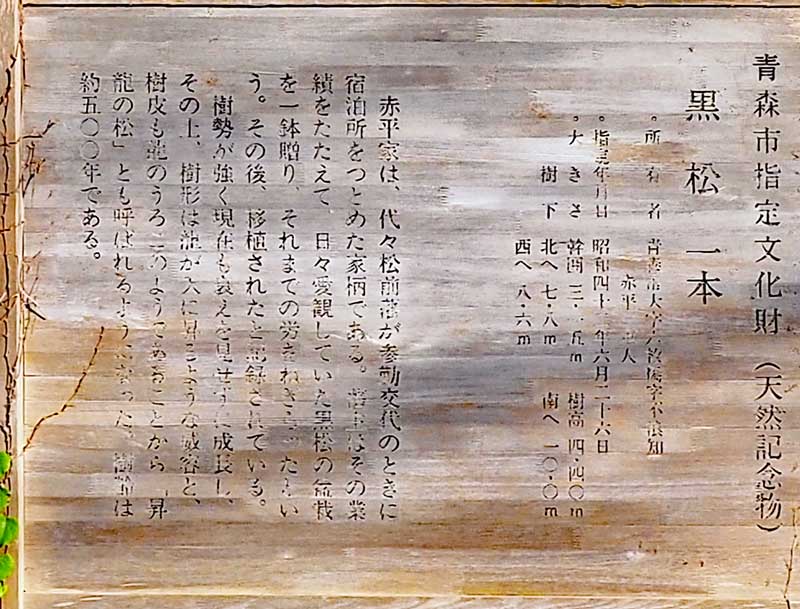 青森市指定文化財（天然記念物）
黒松一本
。所有者 青森市大字六枚橋字
赤平
。指定年月日 昭和四十 年六月二十六日
。大きさ 幹囲 三・ 五m 樹高 四・四〇m
樹下 北へ 七・八m 南へ 一〇・〇m
西へ 八・六m
赤平家は、代々松前藩が参勤交代のときに
宿泊所をつとめた家柄である。藩主はその業
績をたたえて、日々愛観していた黒松の盆栽
を一鉢贈り、それまでの労をねぎらったとい
う。その後、移植されたと記録されている。
樹勢が強く現在も衰えを見せずに成長し、
その上、樹形は龍が天に昇るような威容と、
樹皮も龍のうろこのようであることから「昇
龍の松」とも呼ばれるようになった。樹齢は
約五〇〇年である。